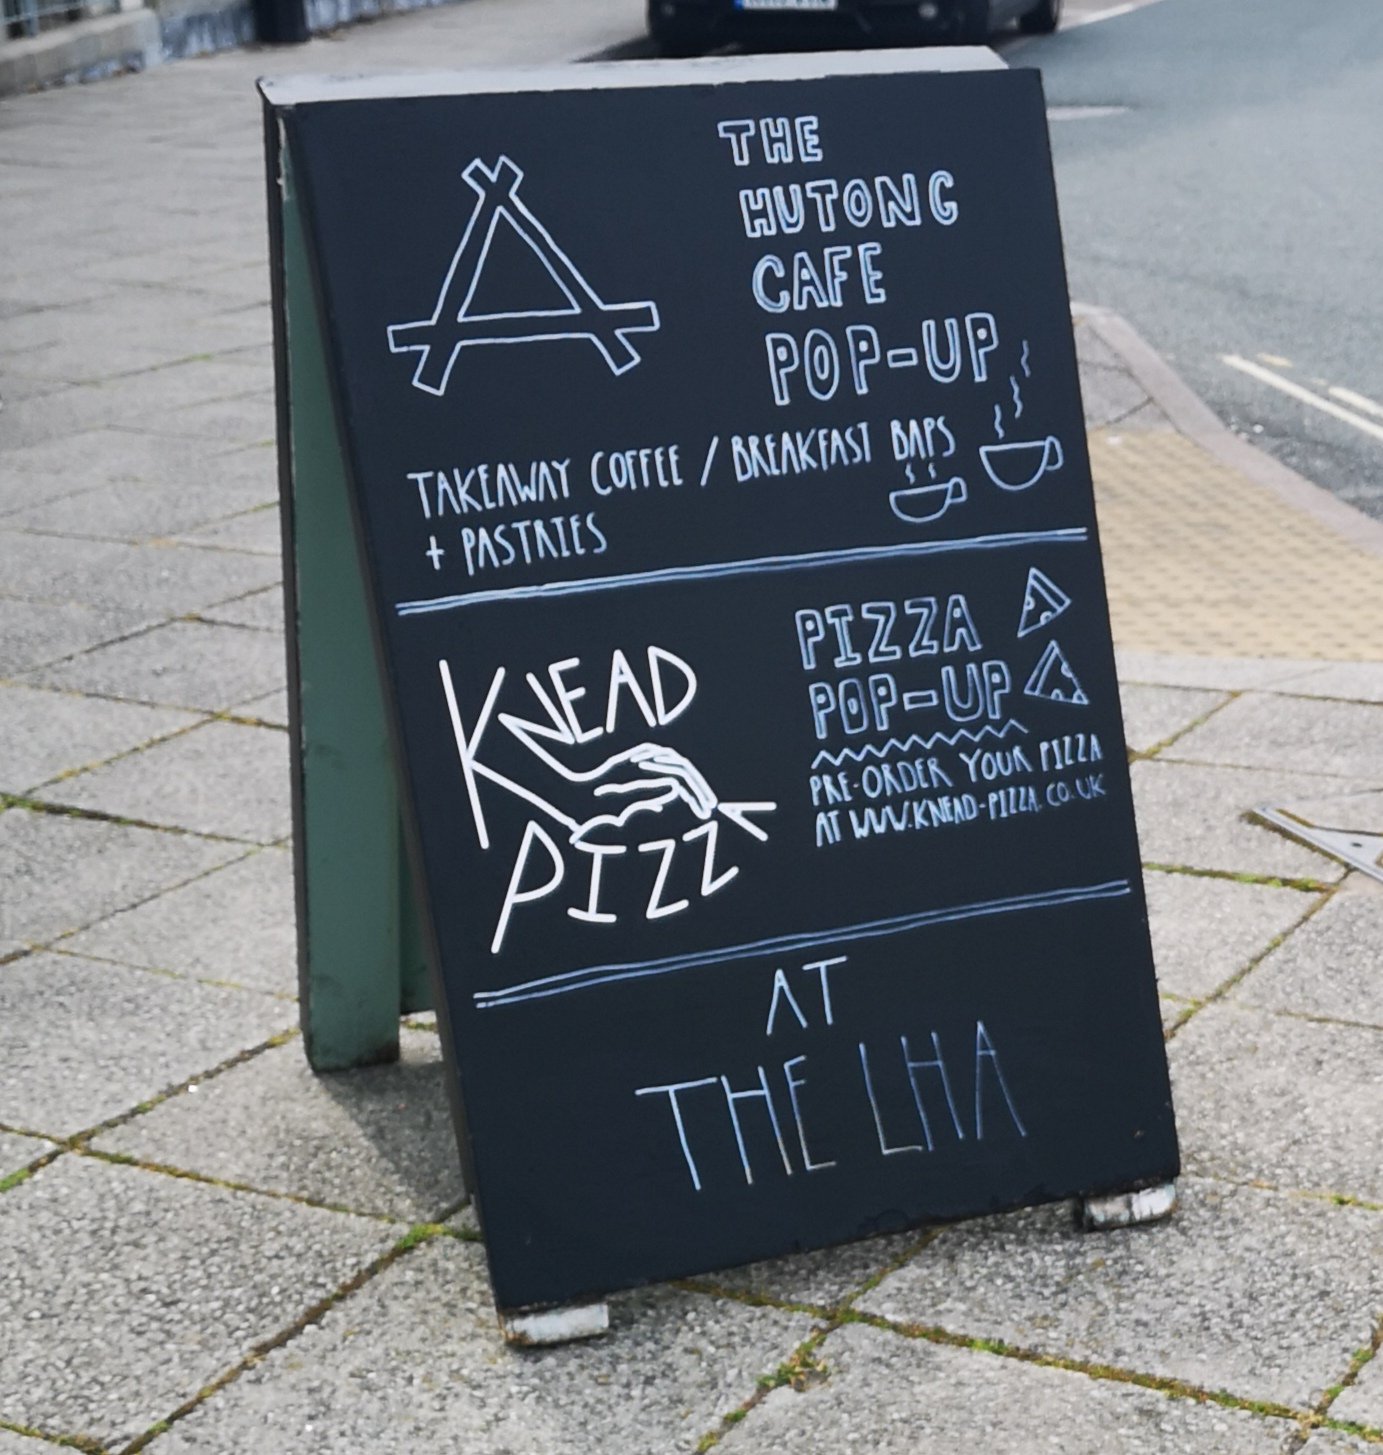 THE
HUTONG
CAFE
POP-UP
TAKEAWAY COFFEE / BREAKFAST BAPS
+ PASTRIES
KNEAD
PIZZA
PIZZA
POP-UP
PRE-ORDER YOUR PIZZA
AT WWW.KNEAD-PIZZA.CO.UK
AT
THE LHA